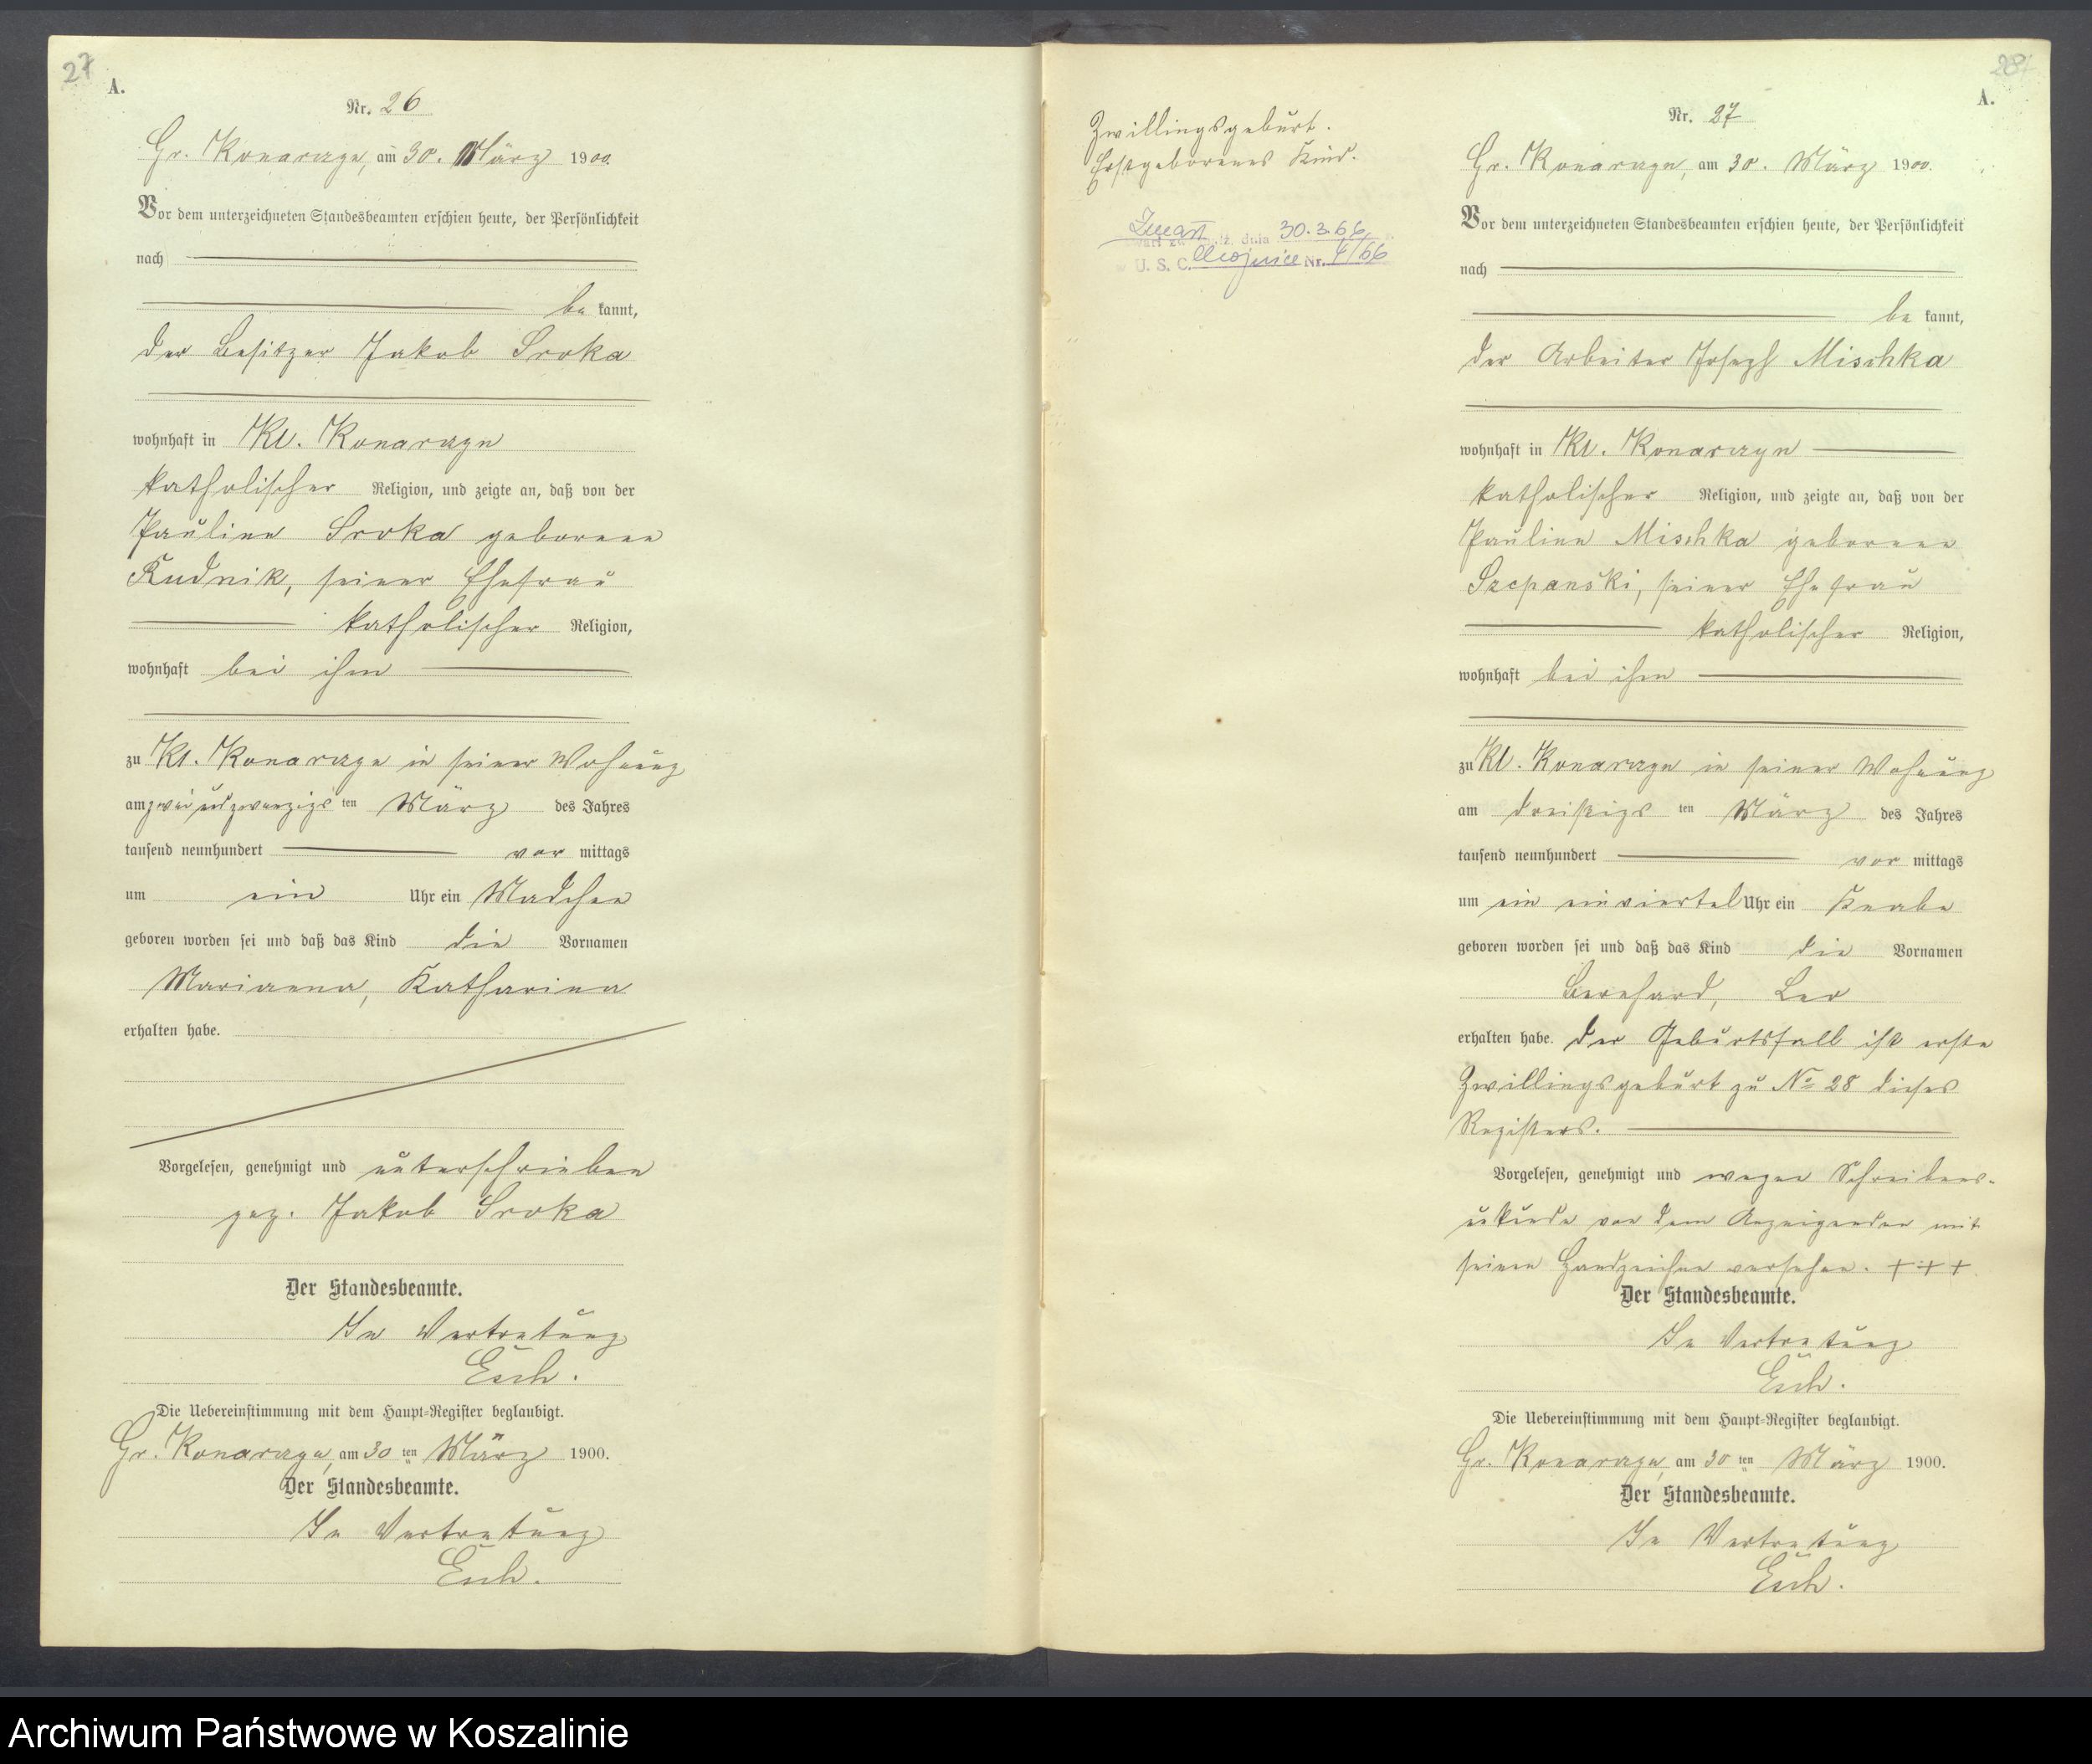 27
A.
Nr. 26
Gr. Konarczyn, am 30. März 1900.
Vor dem unterzeichneten Standesbeamten erschien heute, der Persönlichkeit
nach
be kannt,
der Besitzer Jakob Sroka
wohnhaft in Kl. Konarczyn
katholischer Religion, und zeigte an, daß von der
Pauline Sroka geborene
Rudnik, seiner Ehefrau
katholischer Religion,
wohnhaft bei ihm
zu Kl. Konarczyn in seiner Wohnung
am zwei und zwanzigs ten März des Jahres
tausend neunhundert vor mittags
um ein Uhr ein Madchen
geboren worden sei und daß das Kind die Vornamen
Marianna, Katharina
erhalten habe.
Vorgelesen, genehmigt und unterschrieben
gez. Jakob Sroka
Der Standesbeamte.
In Vertretung
Esch.
Die Uebereinstimmung mit dem Haupt-Register beglaubigt.
Gr. Konarczyn, am 30 ten März 1900.
Der Standesbeamte.
In Vertretung
Esch.
28
A.
Zwillingsgeburt.
Erstgeborenes Kind.
dnia 30.3.66
w U. S. C. Chojnice Nr. 4/66
Nr. 27
Gr. Konarczyn, am 30. März 1900.
Vor dem unterzeichneten Standesbeamten erschien heute, der Persönlichkeit
nach
be kannt,
der Arbeiter Joseph Mischka
wohnhaft in Kl. Konarczyn
katholischer Religion, und zeigte an, daß von der
Pauline Mischka geborene
Szepanski, seiner Ehefrau
katholischer Religion,
wohnhaft bei ihm
zu Kl. Konarczyn in seiner Wohnung
am dreißigs ten März des Jahres
tausend neunhundert vor mittags
um ein einviertel Uhr ein Knabe
geboren worden sei und daß das Kind die Vornamen
Bernhard, Leo
erhalten habe. Der Geburtsfall ist erste
Zwillingsgeburt zu No 28 dieses
Registers.
Vorgelesen, genehmigt und wegen Schreibens-
unkunde von dem Anzeigenden mit
seinen Handzeichen versehen. + + +
Der Standesbeamte.
In Vertretung
Esch.
Die Uebereinstimmung mit dem Haupt-Register beglaubigt.
Gr. Konarczyn, am 30 ten März 1900.
Der Standesbeamte.
In Vertretung
Esch.
Archiwum Państwowe w Koszalinie